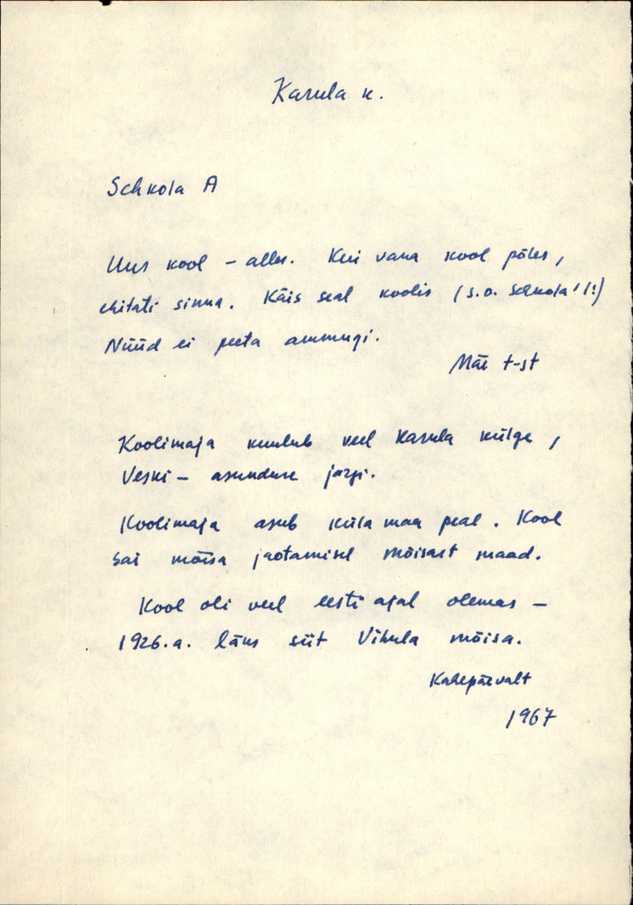 Karula k.
Schkola A
Uus kool – alles. Kui vana kool põles,
ehitati sinna. Käis seal koolis (s.o. Schkola'!!)
Nüüd ei peeta ammugi.
Mäe t-st
Koolimaja kuulub veel Karula külge,
Veski – asunduse järgi.
Koolimaja asub küla maa peal. Kool
sai mõisa jaotamisel mõisast maad.
Kool oli veel eesti ajal olemas –
1926.a. läks siit Vihula mõisa.
Kahepäevalt
1967